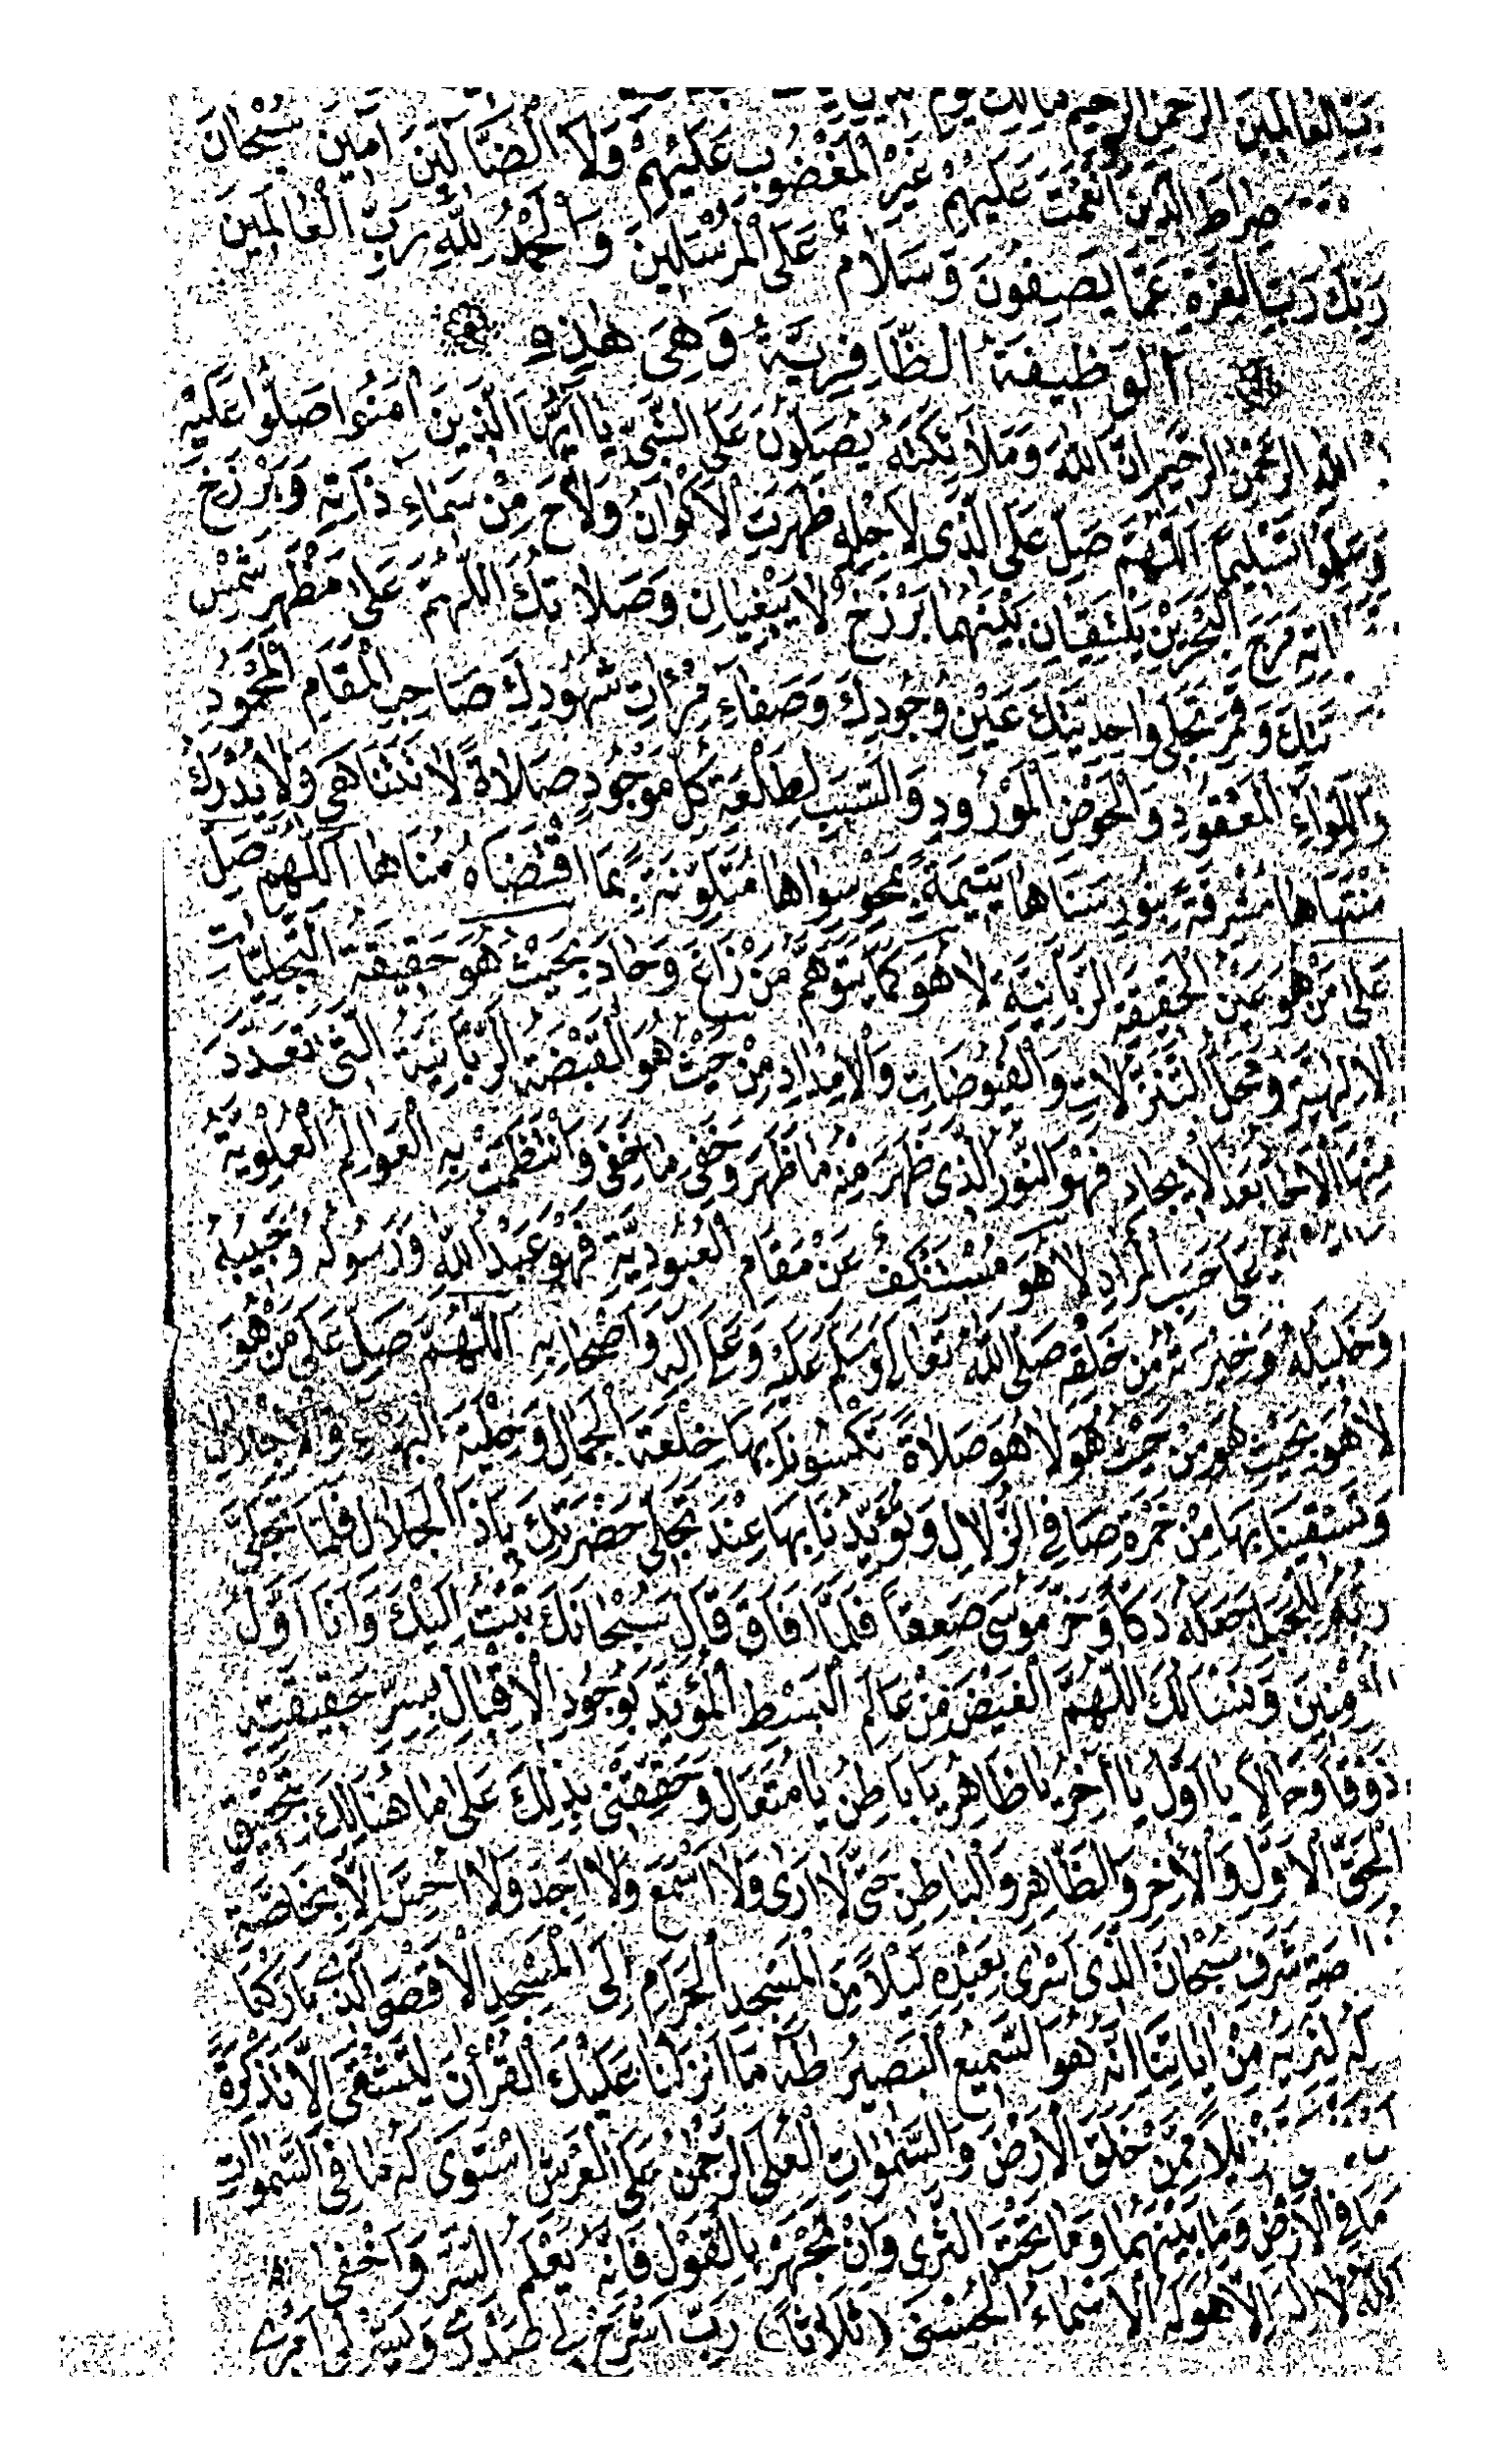 رَبِّ الْعَالَمِينَ الرَّحْمٰنِ الرَّحِيمِ مَالِكِ يَوْمِ
صِرَاطَ الَّذِينَ أَنْعَمْتَ عَلَيْهِمْ غَيْرِ الْمَغْضُوبِ عَلَيْهِمْ وَلَا الضَّالِّينَ اٰمِينَ سُبْحَانَ
رَبِّكَ رَبِّ الْعِزَّةِ عَمَّا يَصِفُونَ وَسَلَامٌ عَلَى الْمُرْسَلِينَ وَالْحَمْدُ لِلّٰهِ رَبِّ الْعَالَمِينَ
اَلْوَظِيفَةُ الظَّافِرِيَّةُ وَهِيَ هٰذِهِ
اللّٰهِ الرَّحْمٰنِ الرَّحِيمِ اِنَّ اللّٰهَ وَمَلَائِكَتَهُ يُصَلُّونَ عَلَى النَّبِيِّ يَا اَيُّهَا الَّذِينَ اٰمَنُوا صَلُّوا عَلَيْهِ
وَسَلِّمُوا تَسْلِيمًا اَللّٰهُمَّ صَلِّ عَلَى الَّذِي لِاَجْلِهِ ظَهَرَتِ الْاَكْوَانُ وَلَاحَ مِنْ سَمَاءِ ذَاتِهِ وَبَرْزَخِ
مَرَجَ الْبَحْرَيْنِ يَلْتَقِيَانِ بَيْنَهُمَا بَرْزَخٌ لَا يَبْغِيَانِ وَصَلَاتُكَ اللّٰهُمَّ عَلٰى مَظْهَرِ شَمْسِ
وَقَمَرِ تَجَلِّي وَاحِدِيَّتِكَ عَيْنِ وُجُودِكَ وَصَفَاءِ مِرْاٰتِ شُهُودِكَ صَاحِبِ الْمَقَامِ الْمَحْمُودِ
وَاللِّوَاءِ الْمَعْقُودِ وَالْحَوْضِ الْمَوْرُودِ وَالسَّبَبِ لِطَلْعَةِ كُلِّ مَوْجُودٍ صَلَاةً لَا تَتَنَاهَى وَلَا يُدْرَكُ
مُنْتَهَاهَا مُشْرِقَةً بِنُورِ سَنَاهَا يَتِيمَةً بِمَحْوِ سِوَاهَا مُتَلَوِّنَةً بِمَا اقْتَضَاهُ مُنَاهَا اَللّٰهُمَّ صَلِّ
عَلٰى مَنْ هُوَ عَيْنُ الْحَقِيقَةِ الرَّبَّانِيَّةِ لَا هُوَ كَمَا يَتَوَهَّمُ مَنْ زَاغَ وَحَادَ بِحَيْثُ هُوَ حَقِيقَةُ التَّجَلِّيَاتِ
الْاِلٰهِيَّةِ وَمَحَلُّ التَّنَزُّلَاتِ وَالْفُيُوضَاتِ وَالْاِمْدَادِ مِنْ حَيْثُ هُوَ الْقَبْضَةُ الرَّبَّانِيَّةُ الَّتِي تَعَدَّدَ
مِنْهَا الْاِيجَادِ فَهُوَ النُّورُ الَّذِي ظَهَرَ مِنْهُ مَا ظَهَرَ وَخَفِيَ مَا خَفِيَ وَانْتَظَمَتْ بِهِ الْعَوَالِمُ الْعُلْوِيَّةُ
عَلٰى حَسَبِ الْمُرَادِ لَا هُوَ مُسْتَنْكِفٌ عَنْ مَقَامِ الْعُبُودِيَّةِ فَهُوَ عَبْدُ اللّٰهِ وَرَسُولُهُ وَحَبِيبُهُ
وَخَلِيلُهُ وَخِيرَتُهُ مِنْ خَلْقِهِ صَلَّى اللّٰهُ تَعَالٰى وَسَلَّمَ عَلَيْهِ وَعَلٰى اٰلِهِ وَاَصْحَابِهِ اَللّٰهُمَّ صَلِّ عَلٰى مَنْ هُوَ
لَا هُوَ بِحَيْثُ هُوَ مِنْ حَيْثُ هُوَ لَا هُوَ صَلَاةً تَكْسُونَا بِهَا خِلْعَةَ الْجَمَالِ وَحِلْيَةَ الْبَهَاءِ وَالْاِجْلَالِ
وَتَسْقِينَا بِهَا مِنْ خَمْرَةِ صَافِي الزُّلَالِ وَتُؤَيِّدُنَا بِهَا عِنْدَ تَجَلِّي حَضْرَتِكَ يَاذَا الْجَلَالِ فَلَمَّا تَجَلَّى
رَبُّهُ لِلْجَبَلِ جَعَلَهُ دَكًّا وَخَرَّ مُوسَى صَعِقًا فَلَمَّا اَفَاقَ قَالَ سُبْحَانَكَ تُبْتُ اِلَيْكَ وَاَنَا اَوَّلُ
الْمُؤْمِنِينَ وَنَسْاَلُكَ اللّٰهُمَّ الْفَيْضَ مِنْ عَالَمِ الْبَسْطِ الْمُؤَيَّدِ بِوُجُودِ الْاِقْبَالِ بِسِرِّ حَقِيقَتِهِ
ذَوْقًا وَحَالًا يَا اَوَّلُ يَا اٰخِرُ يَا ظَاهِرُ يَا بَاطِنُ يَا مُتَعَالِ وَحَقِّقْنِي بِذٰلِكَ عَلٰى مَا هُنَالِكَ بِتَحْقِيقِ
الْحَقِّ الْاَوَّلِ وَالْاٰخِرِ وَالظَّاهِرِ وَالْبَاطِنِ حَتَّى لَا اَرٰى وَلَا اَسْمَعَ وَلَا اَجِدَ وَلَا اُحِسَّ اِلَّا بِخَاصَّةِ
شَرَفِ سُبْحَانَ الَّذِي اَسْرٰى بِعَبْدِهِ لَيْلًا مِنَ الْمَسْجِدِ الْحَرَامِ اِلَى الْمَسْجِدِ الْاَقْصَى الَّذِي بَارَكْنَا
لِنُرِيَهُ مِنْ اٰيَاتِنَا اِنَّهُ هُوَ السَّمِيعُ الْبَصِيرُ طٰهٰ مَا اَنْزَلْنَا عَلَيْكَ الْقُرْاٰنَ لِتَشْقَى اِلَّا تَذْكِرَةً
تَنْزِيلًا مِمَّنْ خَلَقَ الْاَرْضَ وَالسَّمٰوَاتِ الْعُلَى الرَّحْمٰنُ عَلَى الْعَرْشِ اسْتَوٰى لَهُ مَا فِي السَّمٰوَاتِ
مَا فِي الْاَرْضِ وَمَا بَيْنَهُمَا وَمَا تَحْتَ الثَّرٰى وَاِنْ تَجْهَرْ بِالْقَوْلِ فَاِنَّهُ يَعْلَمُ السِّرَّ وَاَخْفٰى
اَللّٰهُ لَا اِلٰهَ اِلَّا هُوَ لَهُ الْاَسْمَاءُ الْحُسْنٰى (ثَلَاثًا) رَبِّ اشْرَحْ لِي صَدْرِي وَيَسِّرْ لِي اَمْرِي